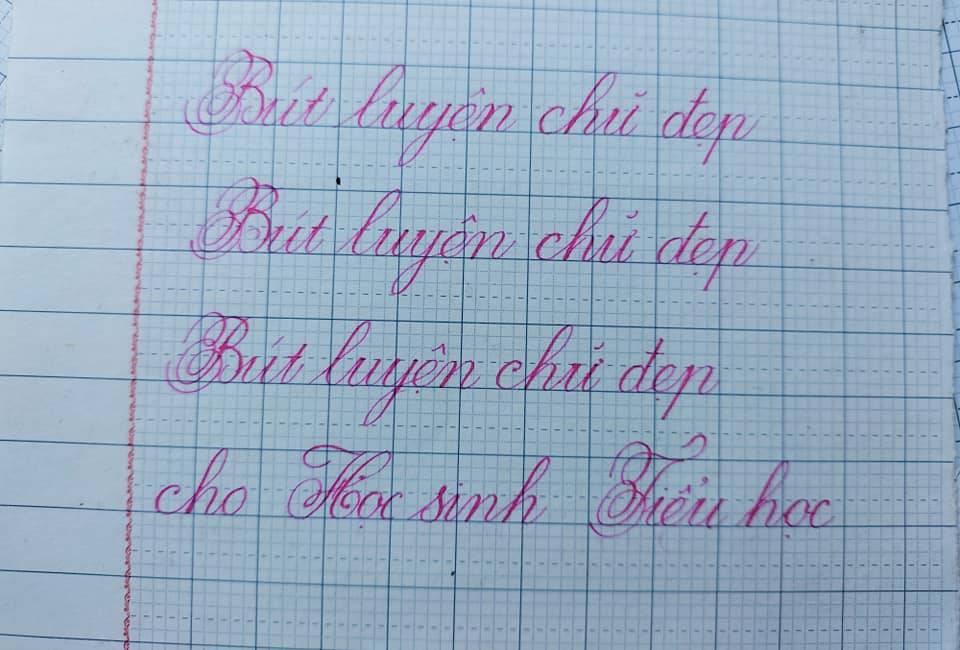 Bút luyện chữ đẹp
Bút luyện chữ đẹp
Bút luyện chữ đẹp
cho Học sinh Tiểu học